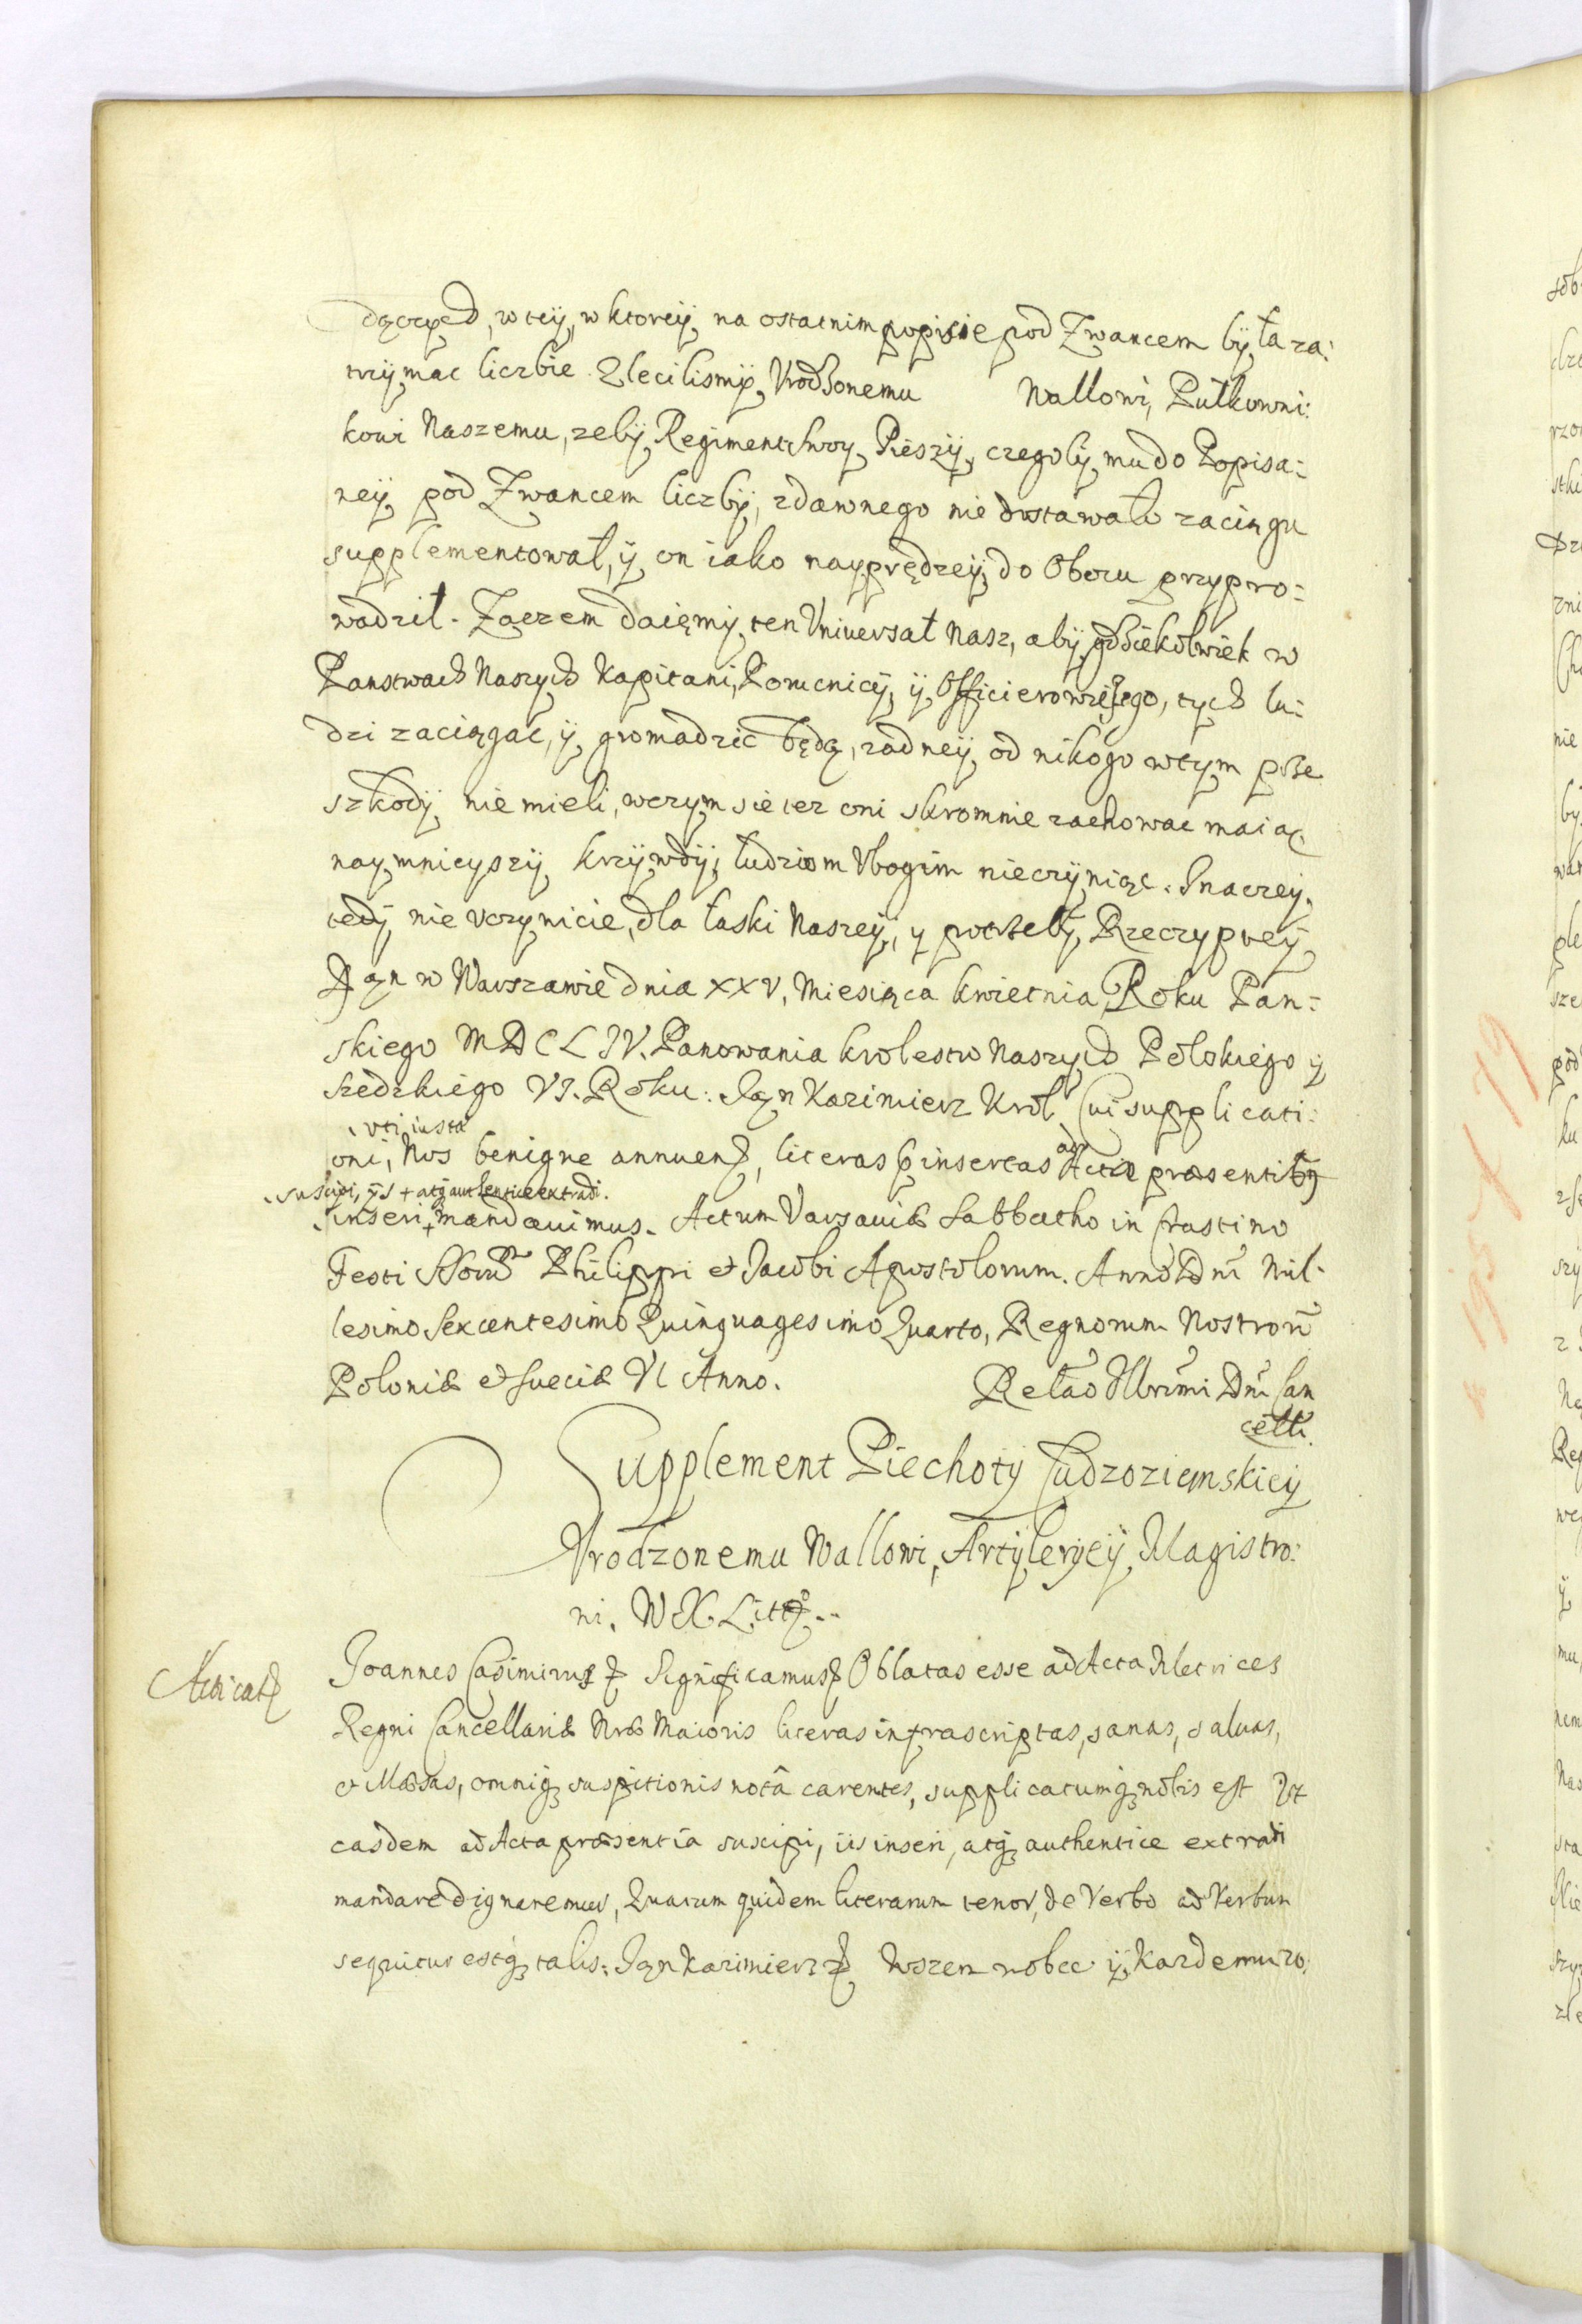 dących, w teÿ, w ktoreÿ, na ostatnim popisie pod Zwancem była za:
trzÿmac liczbie. Zlecilismÿ, Vrodzonemu Wallowi, Pułkowni:
kowi Naszemu, zebÿ, Regiment swoy, Pieszÿ, czegobÿ, mu do Popisa:
neÿ, pod Zwancem liczbÿ, zdawnego nie dostawało zaciągu
supplementował, ÿ, on iako nayprędzeÿ, do Obozu przypro:
wadził. Zaczem daięmÿ, ten Vniuersał Nasz, abÿ, gdziekolwiek w
Panstwach Naszych Kapitani, Porucnicÿ, ÿ, Officierowie Jego, tych lu:
dzi zaciągac, ÿ, gromadzić będą, zadneÿ, od nikogo wtym prze
szkodÿ, nie mieli, wczym sie tez oni skromnie zachowac maiąc
naymnieyszÿ, krzÿwdÿ, ludziom Vbogim nieczÿniąc. Inaczeÿ,
tedÿ nie vczynicie, dla łaski Naszeÿ, y potrzebÿ, Rzeczypteÿ
Dan w Warszawie dnia XXV, Miesiąca Kwietnia, Roku Pan:
skiego MDCLIV. Panowania Krolestw Naszych Polskiego ÿ
Szedzkiego VI. Roku. Jan Kazimierz Krol. Cui supplicati:
uti iusta
oni, Nos benigne annuen, literas pinsertas ad Acta praesentibq
suscipi, ÿs + atq authentice extradi.
inseri + mandauimus. Actum Varsauiæ Sabbatho in Crastino
Festi SSorum Philippi et Jacobi Apostolorum. Anno Dni Mil:
lesimo Sexcentesimo Quinquagesimo Quarto, Regnorum Nostroru
Poloniæ et Sueciæ VI Anno. Relao Illrimi Dni Can
celli.
Supplement Piechotÿ Cudzoziemskieÿ
Vrodzonemu Wallowi, Artÿlerÿeÿ, Magistro:
ni. W X. Litt..
Acticat
Joannes Casimirus Significamus Oblatas esse ad Acta Metrices
Regni Cancellariæ Nræ Maioris literas infrascriptas, sanas, saluas,
et illæsas, omniq suspitionis notâ carentes, supplicatumq nobis est Vt
easdem ad Acta præsentia suscipi, iis inseri, atq authentice extradi
mandare dignaremur, Quarum quidem literarum tenor, de Verbo ad Verbum
sequitur estq talis. Jan Kazimierz Wszem wobec ÿ, Kazdemu zo: